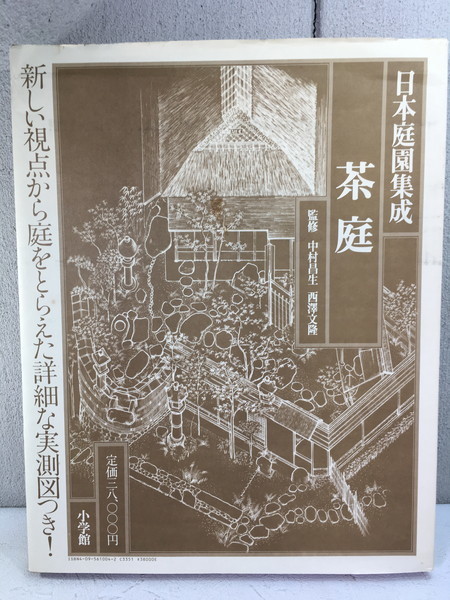 日本庭園集成
茶庭
監修 中村昌生 西澤文隆
新しい視点から庭をとらえた詳細な実測図つき!
定価三八、〇〇〇円
小学館